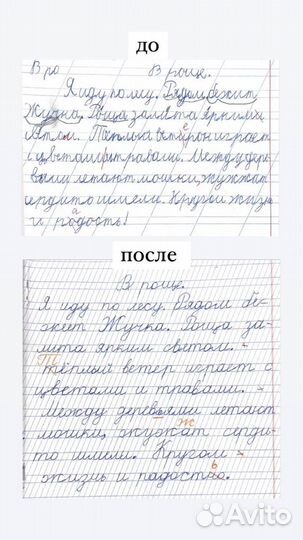 до
В ро В роще.
Я иду по му. Рядом бежит
Жучка. Роща залита ярким
светом. Тёплый ветерок играет
с цветами и травами. Между дере
вьями летают мошки, жужжат
сердито шмели. Кругом жизнь
и радость!
после
В роще.
Я иду по лесу. Рядом бе-
жит Жучка. Роща за-
лита ярким светом. -
Тёплый ветер играет с
цветами и травами. -
Между деревьями летают
мошки, жужжат серди-
то шмели. Кругом -
жизнь и радость.
Avito